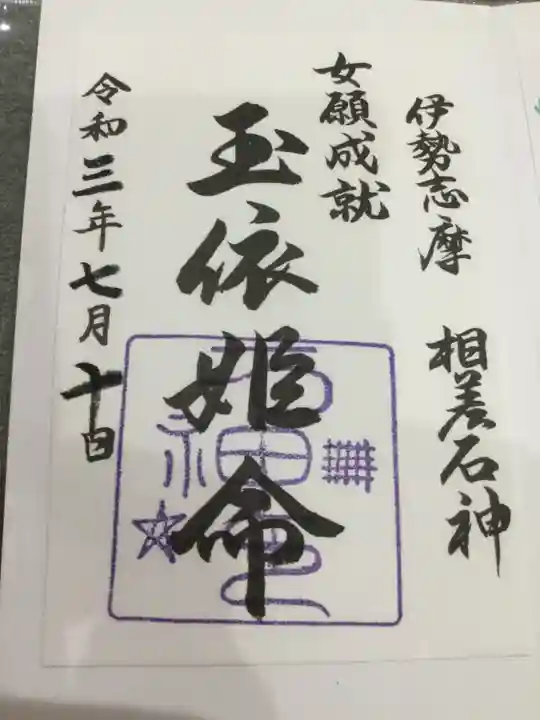 伊勢志摩 相差石神
女願成就
玉依姫命
令和三年七月十日